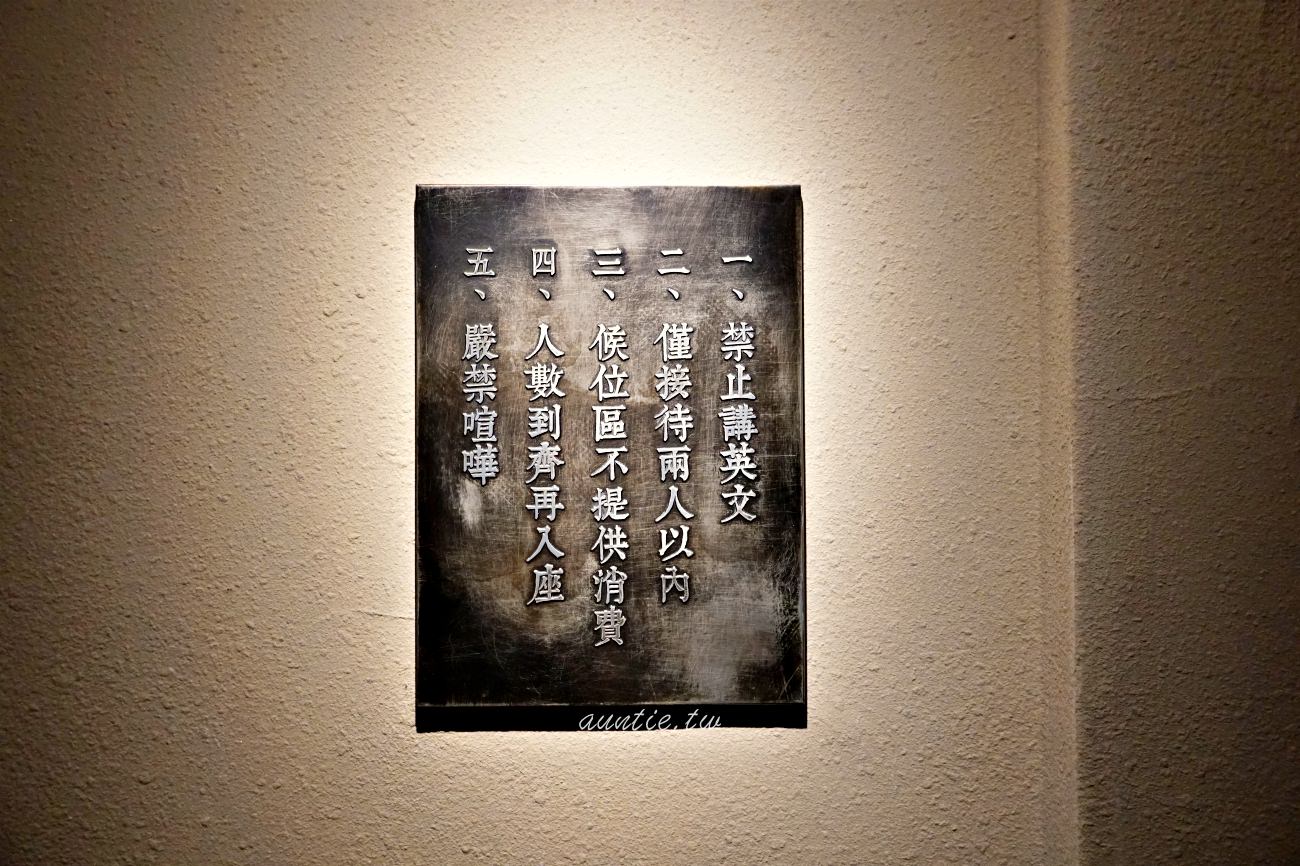 一、禁止講英文
二、僅接待兩人以內
三、候位區不提供消費
四、人數到齊再入座
五、嚴禁喧嘩
auntie.tw